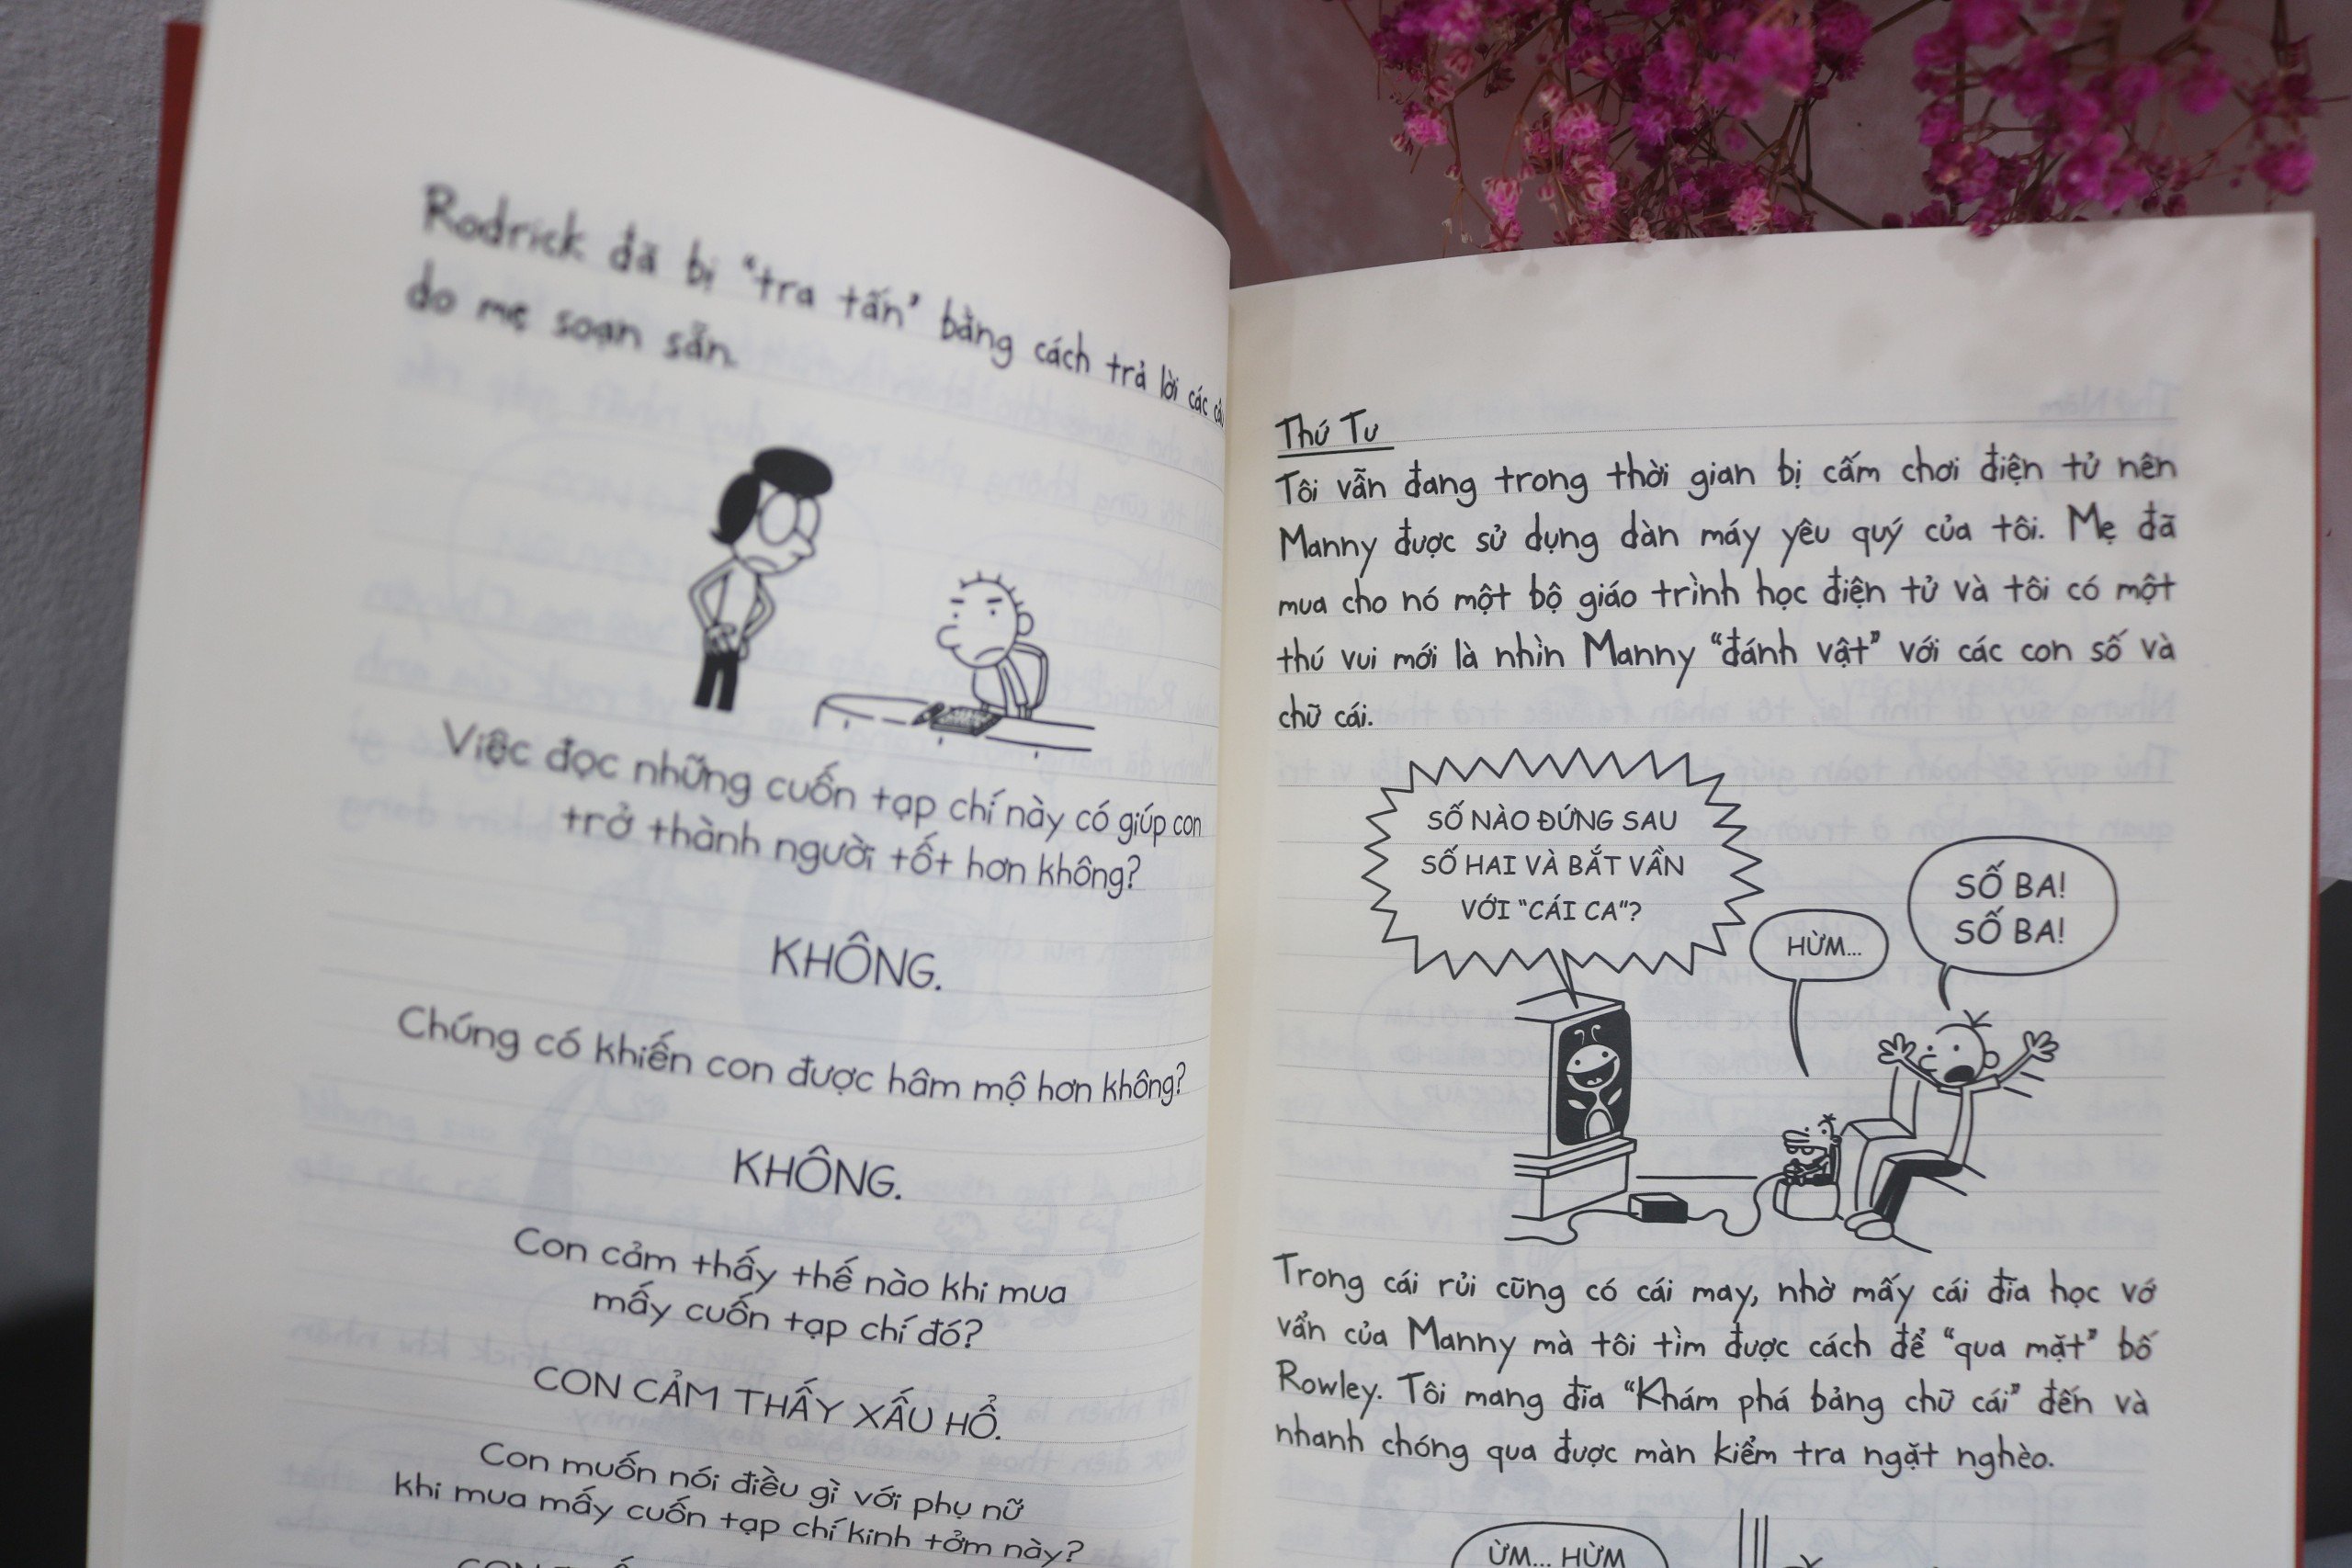 Rodrick đã bị “tra tấn” bằng cách trả lời các
do mẹ soạn sẵn.
Việc đọc những cuốn tạp chí này có giúp con
trở thành người tốt hơn không?
KHÔNG.
Chúng có khiến con được hâm mộ hơn không?
KHÔNG.
Con cảm thấy thế nào khi mua
mấy cuốn tạp chí đó?
CON CẢM THẤY XẤU HỔ.
Con muốn nói điều gì với phụ nữ
khi mua mấy cuốn tạp chí kinh tởm này?
Thứ Tư
Tôi vẫn đang trong thời gian bị cấm chơi điện tử nên
Manny được sử dụng dàn máy yêu quý của tôi. Mẹ đã
mua cho nó một bộ giáo trình học điện tử và tôi có một
thú vui mới là nhìn Manny “đánh vật” với các con số và
chữ cái.
SỐ NÀO ĐỨNG SAU
SỐ HAI VÀ BẮT VẦN
VỚI “CÁI CA”?
HỪM...
SỐ BA!
SỐ BA!
Trong cái rủi cũng có cái may, nhờ mấy cái đĩa học vớ
vẩn của Manny mà tôi tìm được cách để “qua mặt” bố
Rowley. Tôi mang đĩa “Khám phá bảng chữ cái” đến và
nhanh chóng qua được màn kiểm tra ngặt nghèo.
ỪM... HỪM